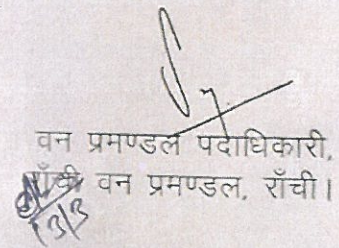 वन प्रमण्डल पदाधिकारी,
राँची वन प्रमण्डल, राँची।